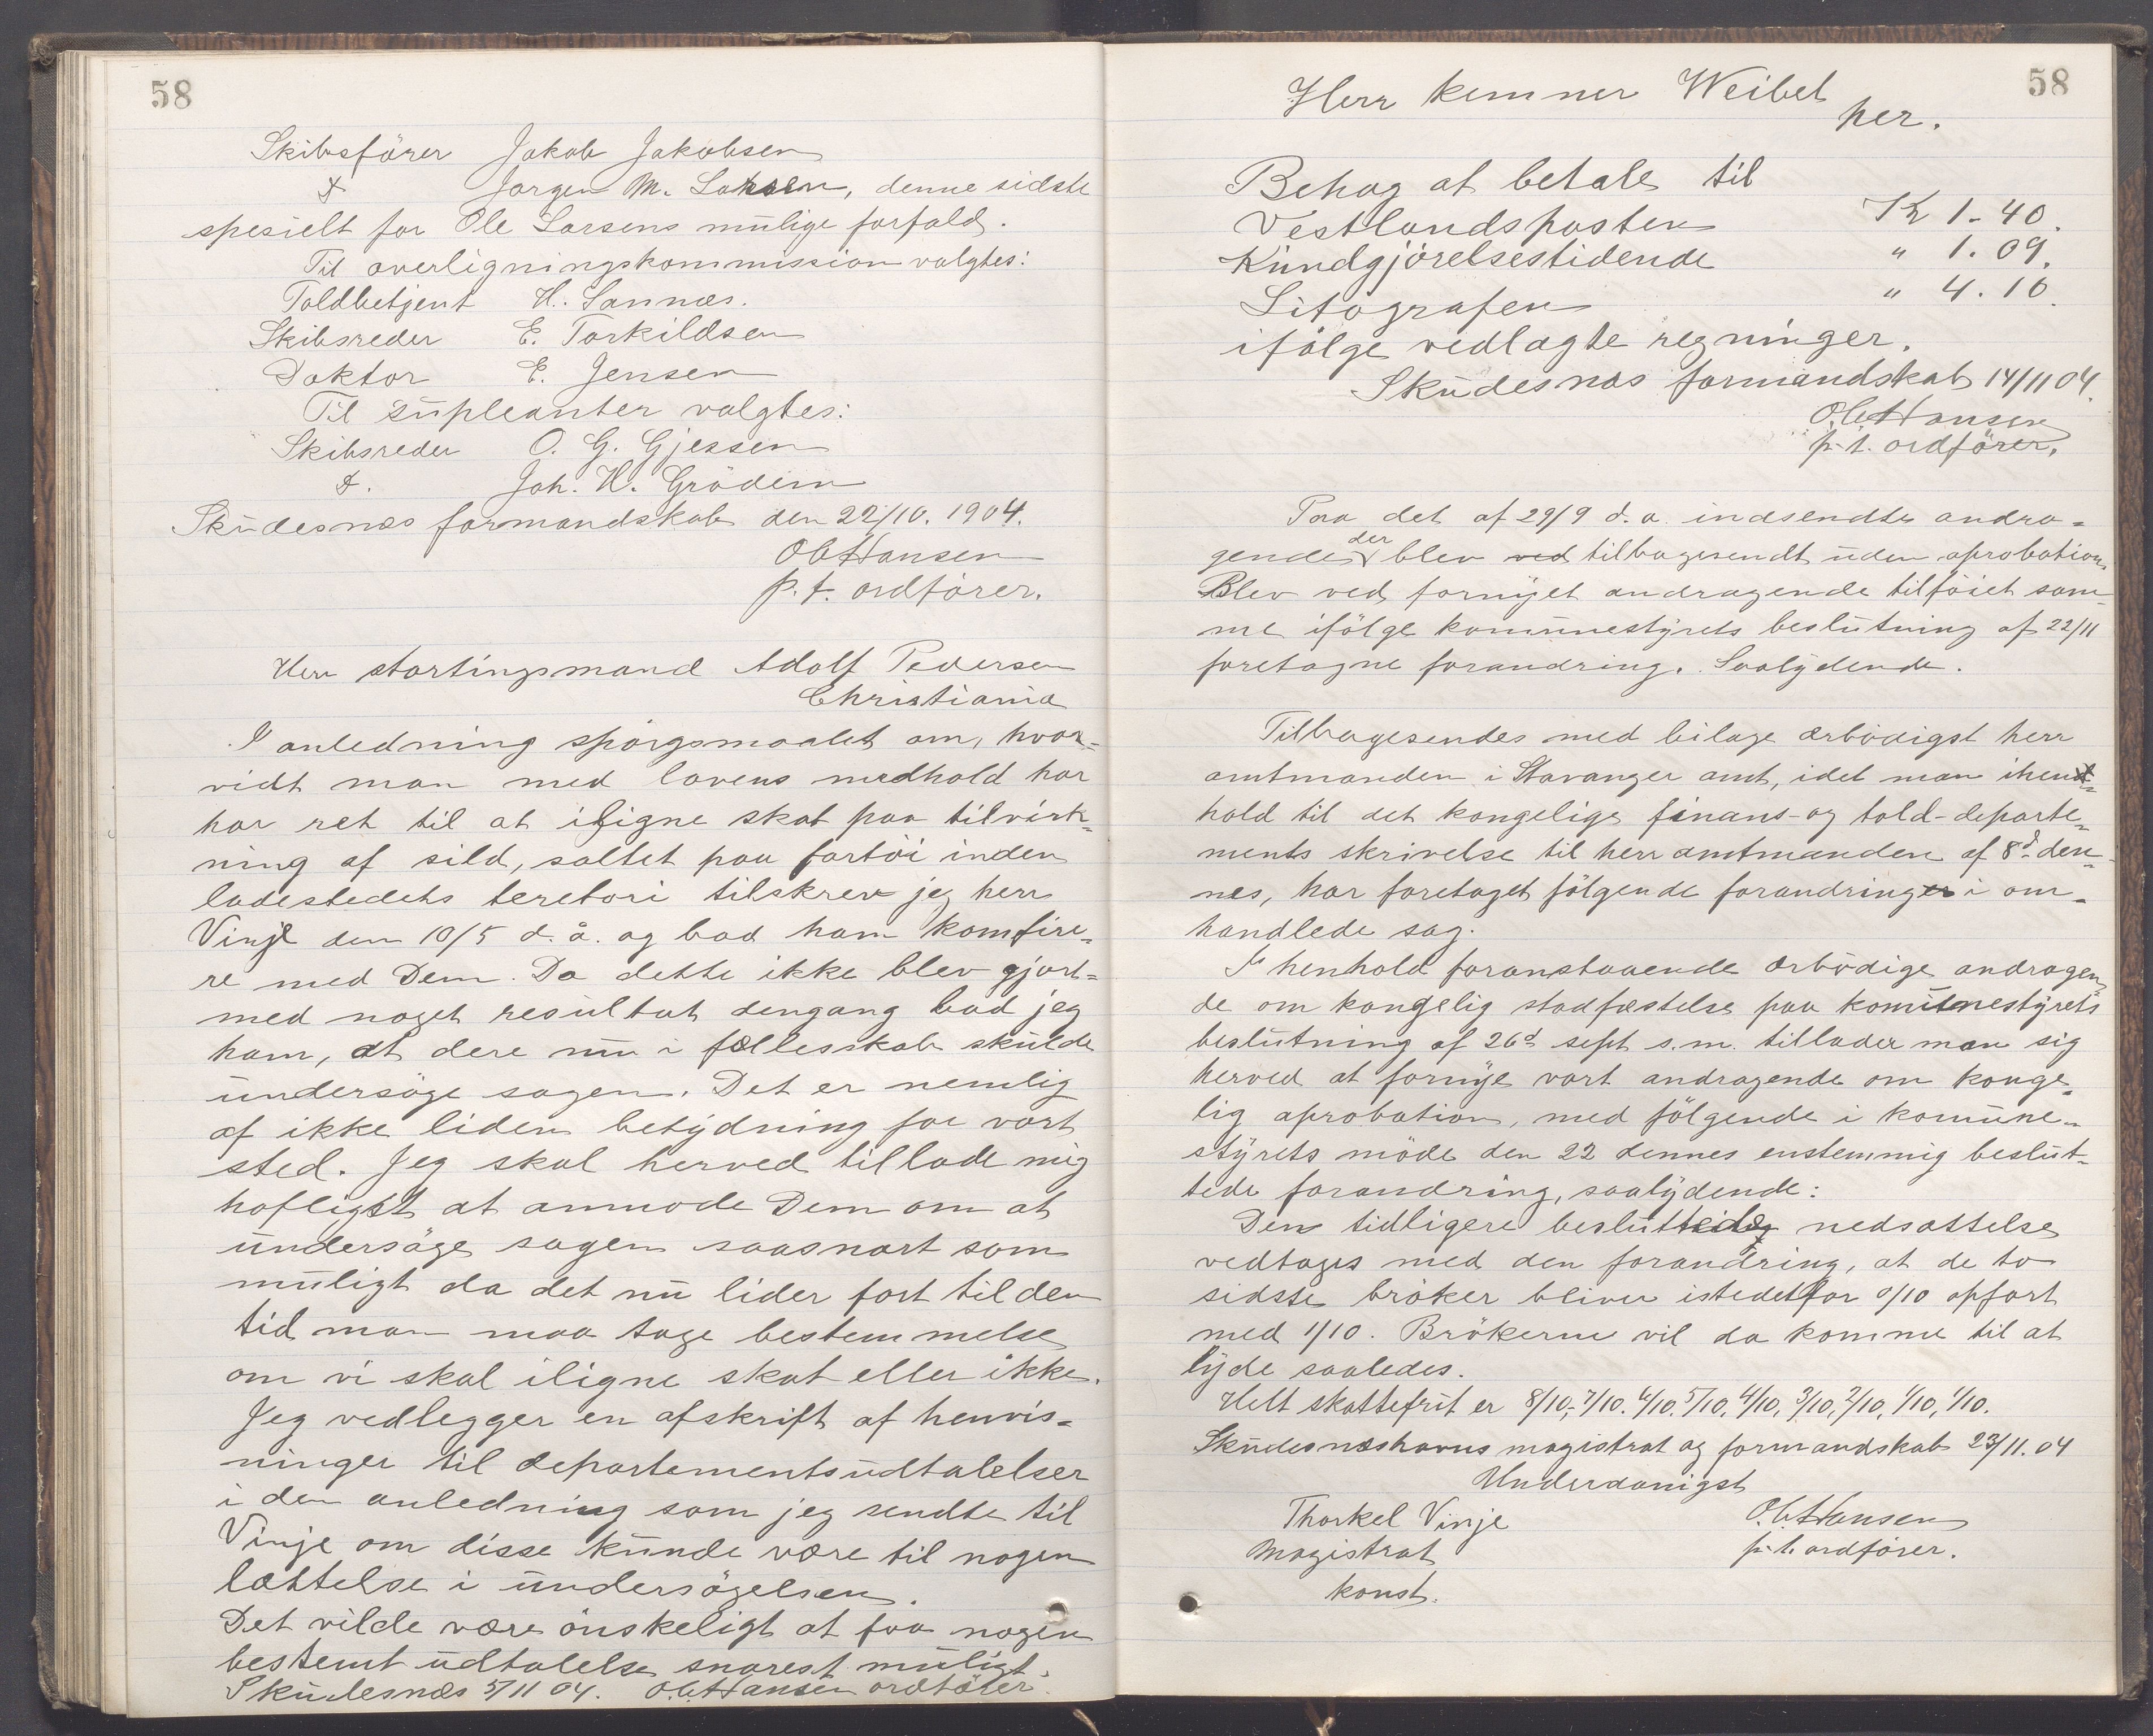 58
Skibsförer Jakob Jakobsen
d Jørgen M. Larsen, denne sidste
spesielt for Ole Larsens mulige forfald.
Til overligningskommission valgtes:
Toldbetjent H. Sannes.
Skibsreder E. Torkildsen
Doktor E. Jensen
Til supleanter valgtes:
Skibsreder O. G. Gjessen
d. Joh. H. Grödem
Skudesnæs formandskab den 22/10. 1904.
O C Hansen
p. t. ordförer.
Herr stortingsmand Adolf Pedersen
Christiania
I anledning spörgsmaalet om, hvor-
vidt man med lovens medhold har
har ret til at iligne skat paa tilvirk-
ning af sild, saltet paa fartöi inden
ladestedets teretori tilskrev jeg herr
Vinje den 10/5 d. å. og bad ham komfire-
re med Dem. Da dette ikke blev gjort
med noget resultat dengang bad jeg
ham, at dere nu i fællesskab skulde
undersöge sagen. Det er nemlig
af ikke liden betydning for vort
sted. Jeg skal herved tillade mig
höfligst at anmode Dem om at
undersöge sagen saasnart som
muligt da det nu lider fort til den
tid man maa tage bestemmelse
om vi skal iligne skat eller ikke.
Jeg vedlegger en afskrift af henvis-
ninger til departementsudtalelser
i den anledning som jeg sendte til
Vinje om disse kunde være til nogen
lættelse i undersögelsen.
Det vilde være önskeligt at faa nogen
bestemt udtalelse snarest muligt.
Skudesnæs 5/11 04. O. C. Hansen ordförer.
58
Herr kemner Weibel
her.
Behag at betale til
Vestlandsposten Kr 1-40.
Kundgjörelsestidende " 1.09.
Litografen " 4.10.
ifölge vedlagte regninger.
Skudesnæs formandskab 14/11 04.
O. C. Hansen
p. t. ordförer.
Paa det af 29/9 d. a. indsendte andra-
gende der blev ved tilbagesendt uden aprobation.
Blev ved fornyet andragende tilföiet sam-
me ifölge komunestyrets beslutning af 22/11
foretagne forandring. Saalydende.
Tilbagesendes med bilage ærbödigst herr
amtmanden i Stavanger amt, idet man i hen-
hold til det kongelige finans- og told-departe-
ments skrivelse til herr amtmanden af 8d den-
nes, har foretaget fölgende forandringer i om-
handlede sag.
I henhold foranstaaende ærbödige andragen-
de om kongelig stadfæstelse paa komunestyrets
beslutning af 26d sept s. m. tillader man sig
herved at fornye vort andragende om konge-
lig aprobation, med fölgende i komune-
styrets möde den 22 dennes enstemmig beslut-
tede forandring, saalydende:
Den tidligere besluttede nedsættelse
vedtages med den forandring, at de to
sidste bröker bliver istedetfor 0/10 opfört
med 1/10. Brökerne vil da komme til at
lyde saaledes.
Helt skattefrit er 8/10, 7/10. 6/10. 5/10, 4/10, 3/10, 2/10, 1/10, 1/10.
Skudesnæshavns magistrat og formandskab 23/11. 04
Underdanigst
Thorkel Vinje O. C. Hansen
Magistrat p. t. ordförer.
konst.